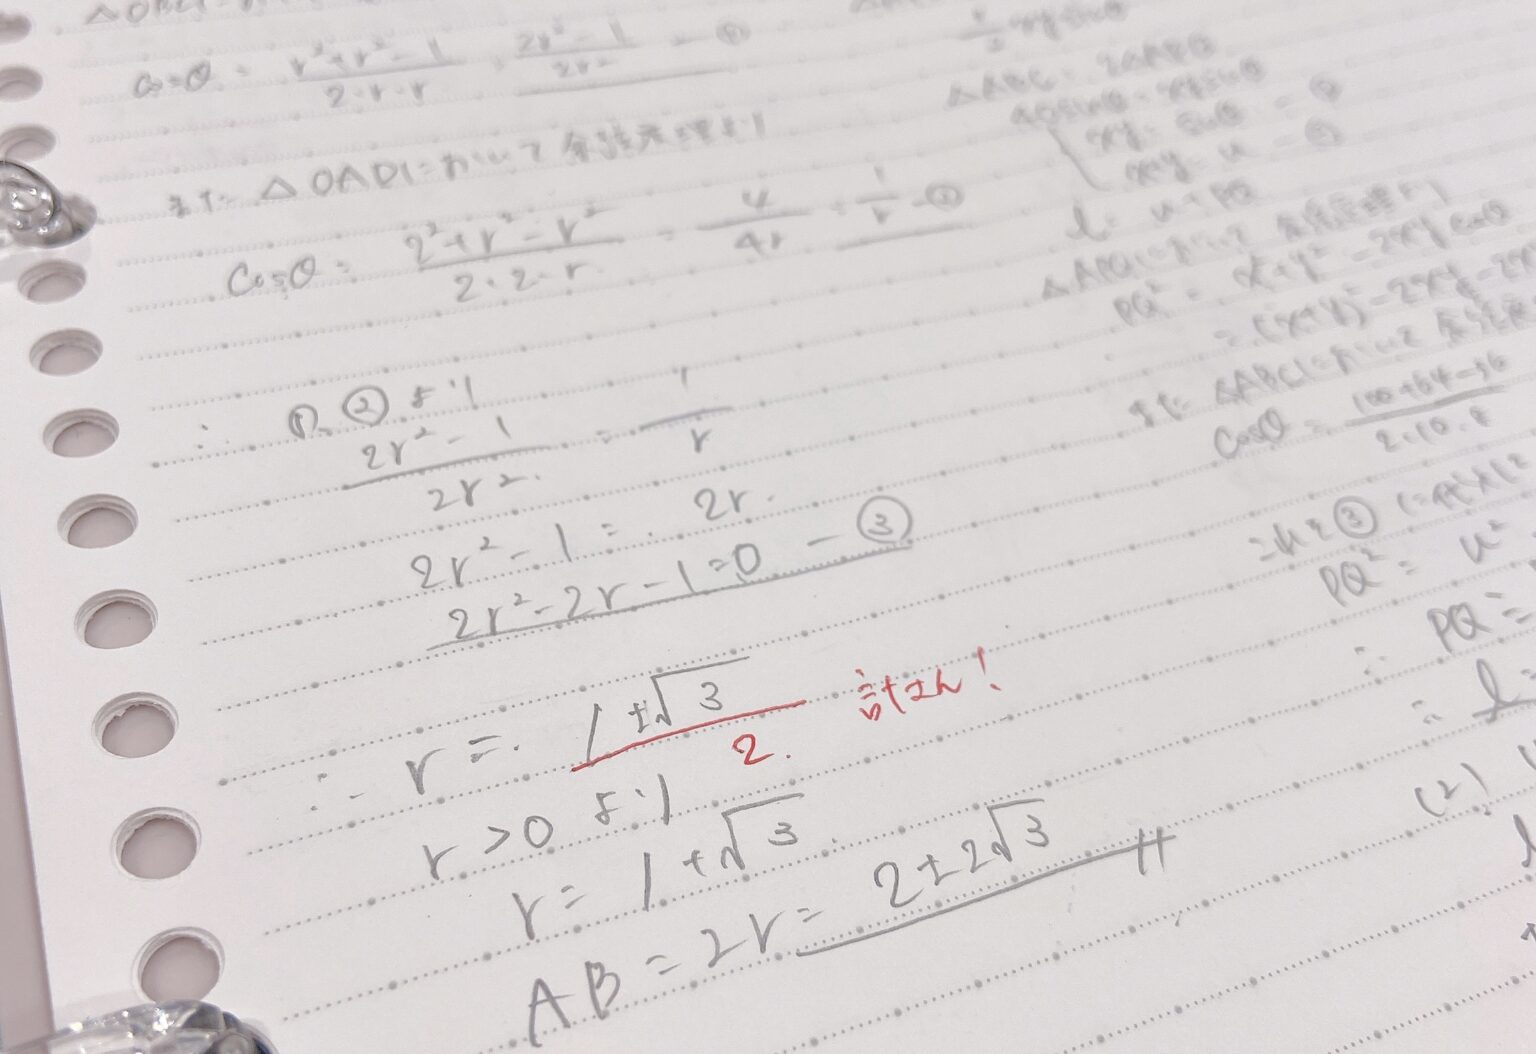 cosθ = r²+r²-1 / 2・r・r = 2r²-1 / 2r² - ①
また △OADにおいて 余弦定理より
cosθ = 2²+r²-r² / 2・2・r = 4 / 4r = 1 / r - ②
∴ ①, ②より
2r²-1 / 2r² = 1 / r
2r²-1 = 2r
2r²-2r-1=0 - ③
∴ r = 1±√3 / 2 計さん!
r>0 より
r = 1+√3
AB = 2r = 2±2√3
△ABC = 2△APQ
xy =
x+y = u
l = u+PQ
△APQにおいて 余弦定理より
PQ² = x²+y²-2xy cosθ
= (x+y)²-2xy-2x
また △ABCにおいて 余弦定
cosθ = 100+64-36 / 2・10・8
これを③に代
PQ² = u²
∴ PQ =
∴ l =
(2)